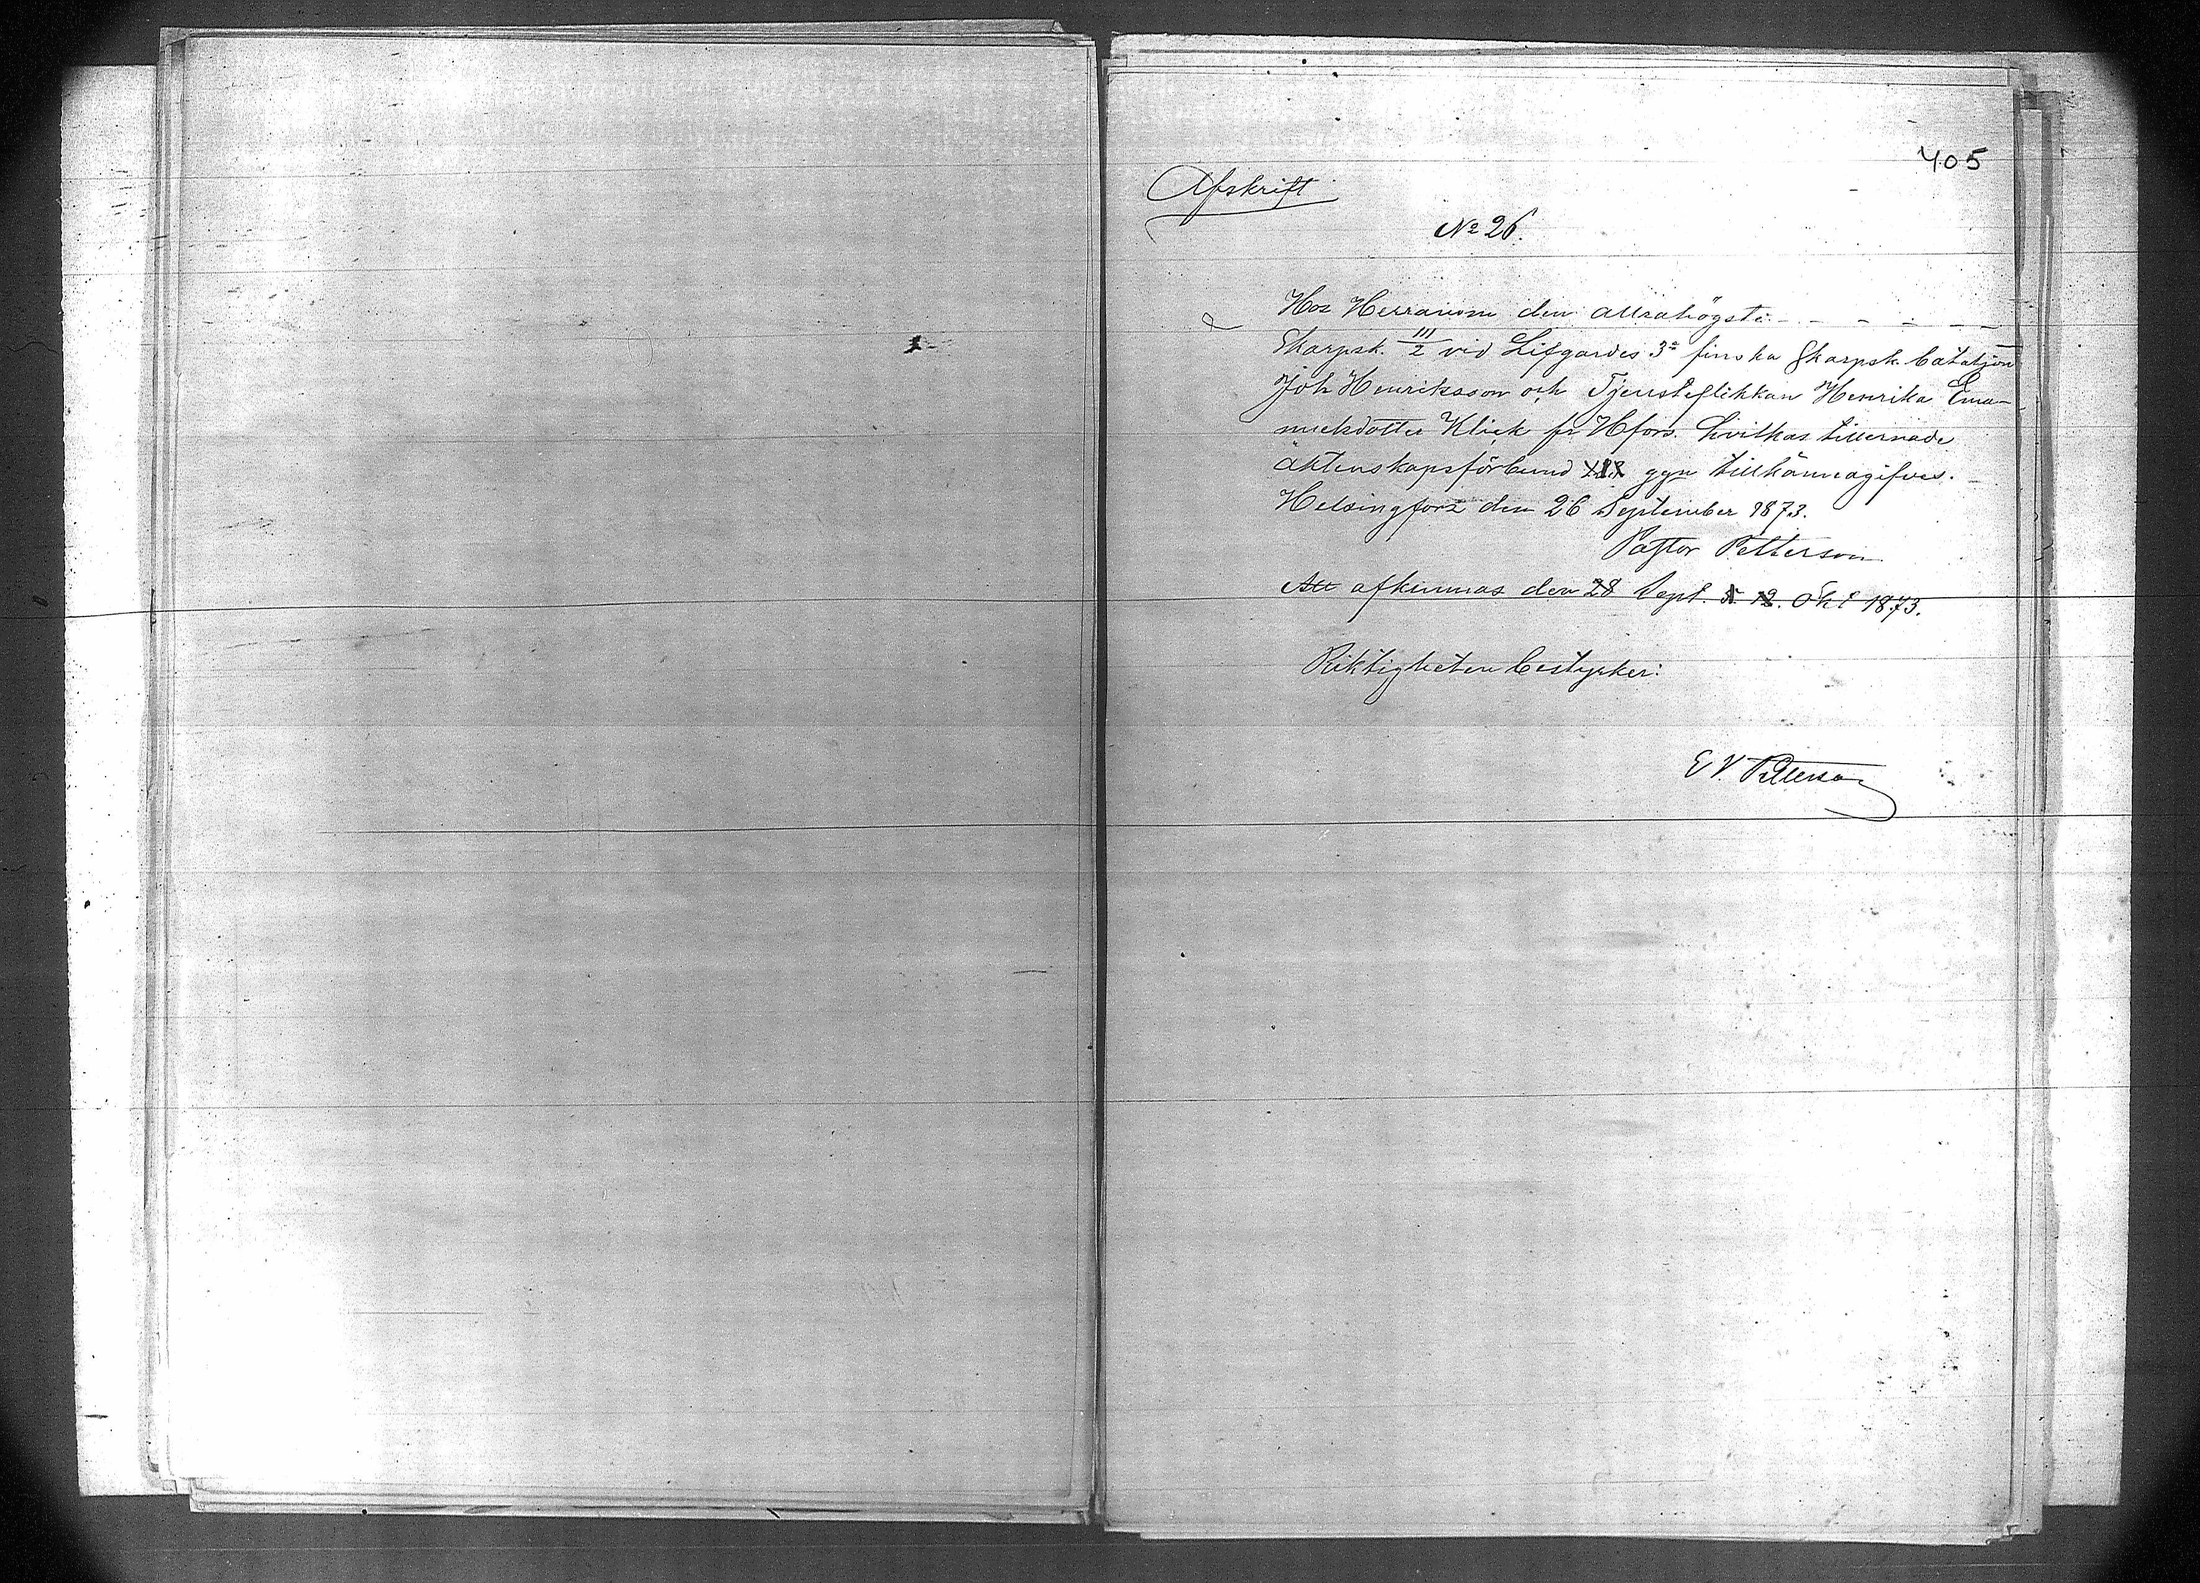 405
Afskrift
No 26.
Hos Herranom den allrahögste - - - - - -
Skarpsk. III/2 vid Lifgardes 3e finska skarpsk. bataljon
Joh Henriksson och Tjensteflickan Henrika Ema-
nuelsdotter Klick fr Hfors. hvilkas tillernade
äktenskapsförbund ggn tillkännagifves.
Helsingfors den 26 September 1873.
Pastor Petterson
Att afkunnas den 28 Sept. 5. 12. Okt 1873.
Riktigheten bestyrker:
E V. Petterson